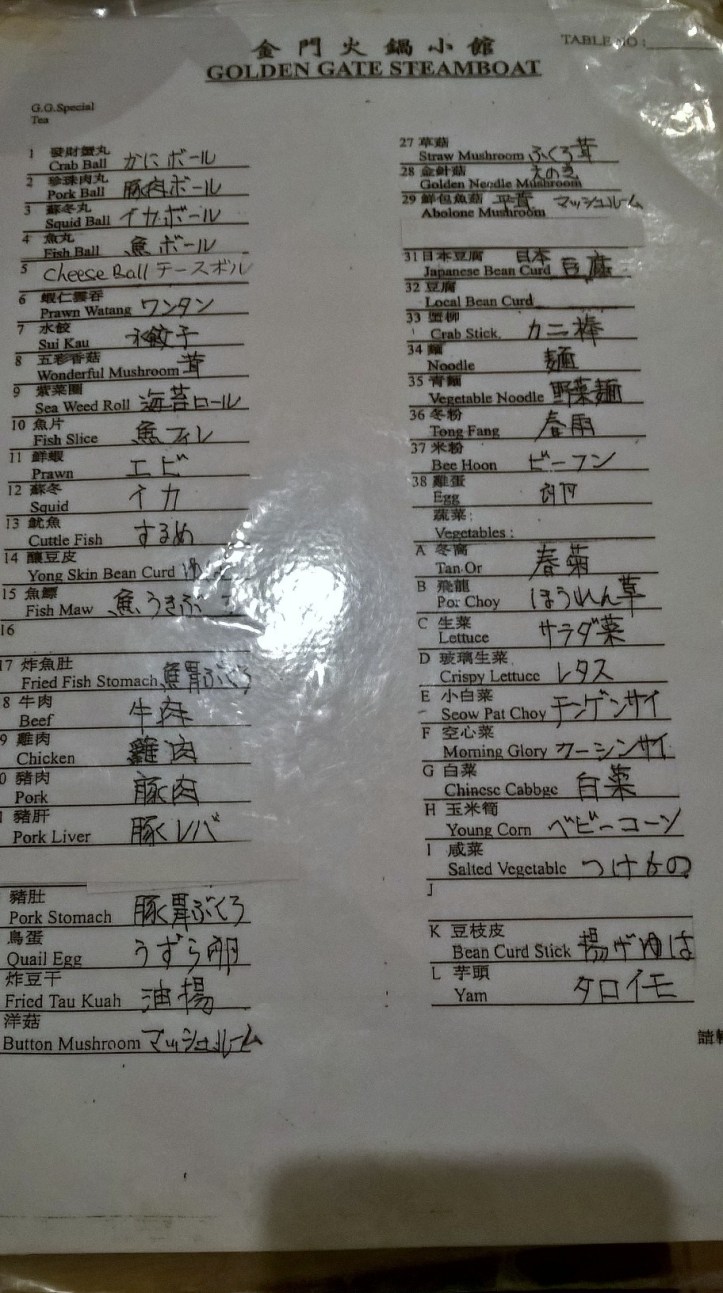 金門火鍋小館
TABLE NO :
GOLDEN GATE STEAMBOAT
G.G.Special
Tea
1 發財蟹丸
Crab Ball かにボール
2 珍珠肉丸
Pork Ball 豚肉ボール
3 蘇冬丸
Squid Ball イカボール
4 魚丸
Fish Ball 魚ボール
5 Cheese Ball チースボル
6 蝦仁雲吞
Prawn Watang ワンタン
7 水餃
Sui Kau 水餃子
8 五彩香菇
Wonderful Mushroom 茸
9 紫菜圈
Sea Weed Roll 海苔ロール
10 魚片
Fish Slice 魚フィレ
11 鮮蝦
Prawn エビ
12 蘇冬
Squid イカ
13 魷魚
Cuttle Fish するめ
14 釀豆皮
Yong Skin Bean Curd
15 魚鰾
Fish Maw 魚うきぶ
16
17 炸魚肚
Fried Fish Stomach 魚胃ぶくろ
8 牛肉
Beef 牛肉
9 雞肉
Chicken 雞肉
0 豬肉
Pork 豚肉
豬肝
Pork Liver 豚レバ
豬肚
Pork Stomach 豚胃ぶくろ
鳥蛋
Quail Egg うずら卵
炸豆干
Fried Tau Kuah 油揚
洋菇
Button Mushroom マッシュルーム
27 草菇
Straw Mushroom ふくろ茸
28 金針菇 えのき
Golden Needle Mushroom
29 鮮包魚菇 平茸 マッシュルーム
Abolone Mushroom
31 日本豆腐 日本
Japanese Bean Curd 豆腐
32 豆腐
Local Bean Curd
33 蟹柳
Crab Stick カニ棒
34 麵
Noodle 麺
35 青麵
Vegetable Noodle 野菜麺
36 冬粉
Tong Fang 春雨
37 米粉
Bee Hoon ビーフン
38 雞蛋
Egg 卵
蔬菜 :
Vegetables :
A 冬蒿
Tan Or 春菊
B 飛龍
Por Choy ほうれん草
C 生菜
Lettuce サラダ菜
D 玻璃生菜
Crispy Lettuce レタス
E 小白菜
Seow Pat Choy チンゲンサイ
F 空心菜
Morning Glory クーシンサイ
G 白菜
Chinese Cabbge 白菜
H 玉米筍
Young Corn ベビーコーン
I 咸菜
Salted Vegetable つけもの
J
K 豆枝皮
Bean Curd Stick 揚げゆば
L 芋頭
Yam タロイモ
請